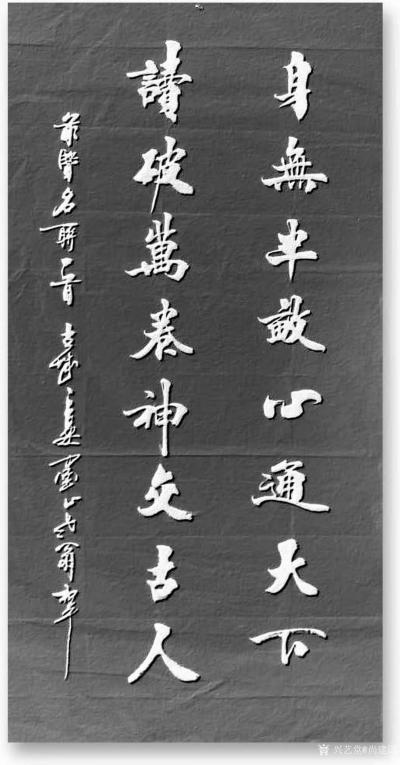 身無半畝心通大下
讀破萬卷神交古人
前賢名聯一首
兴艺堂